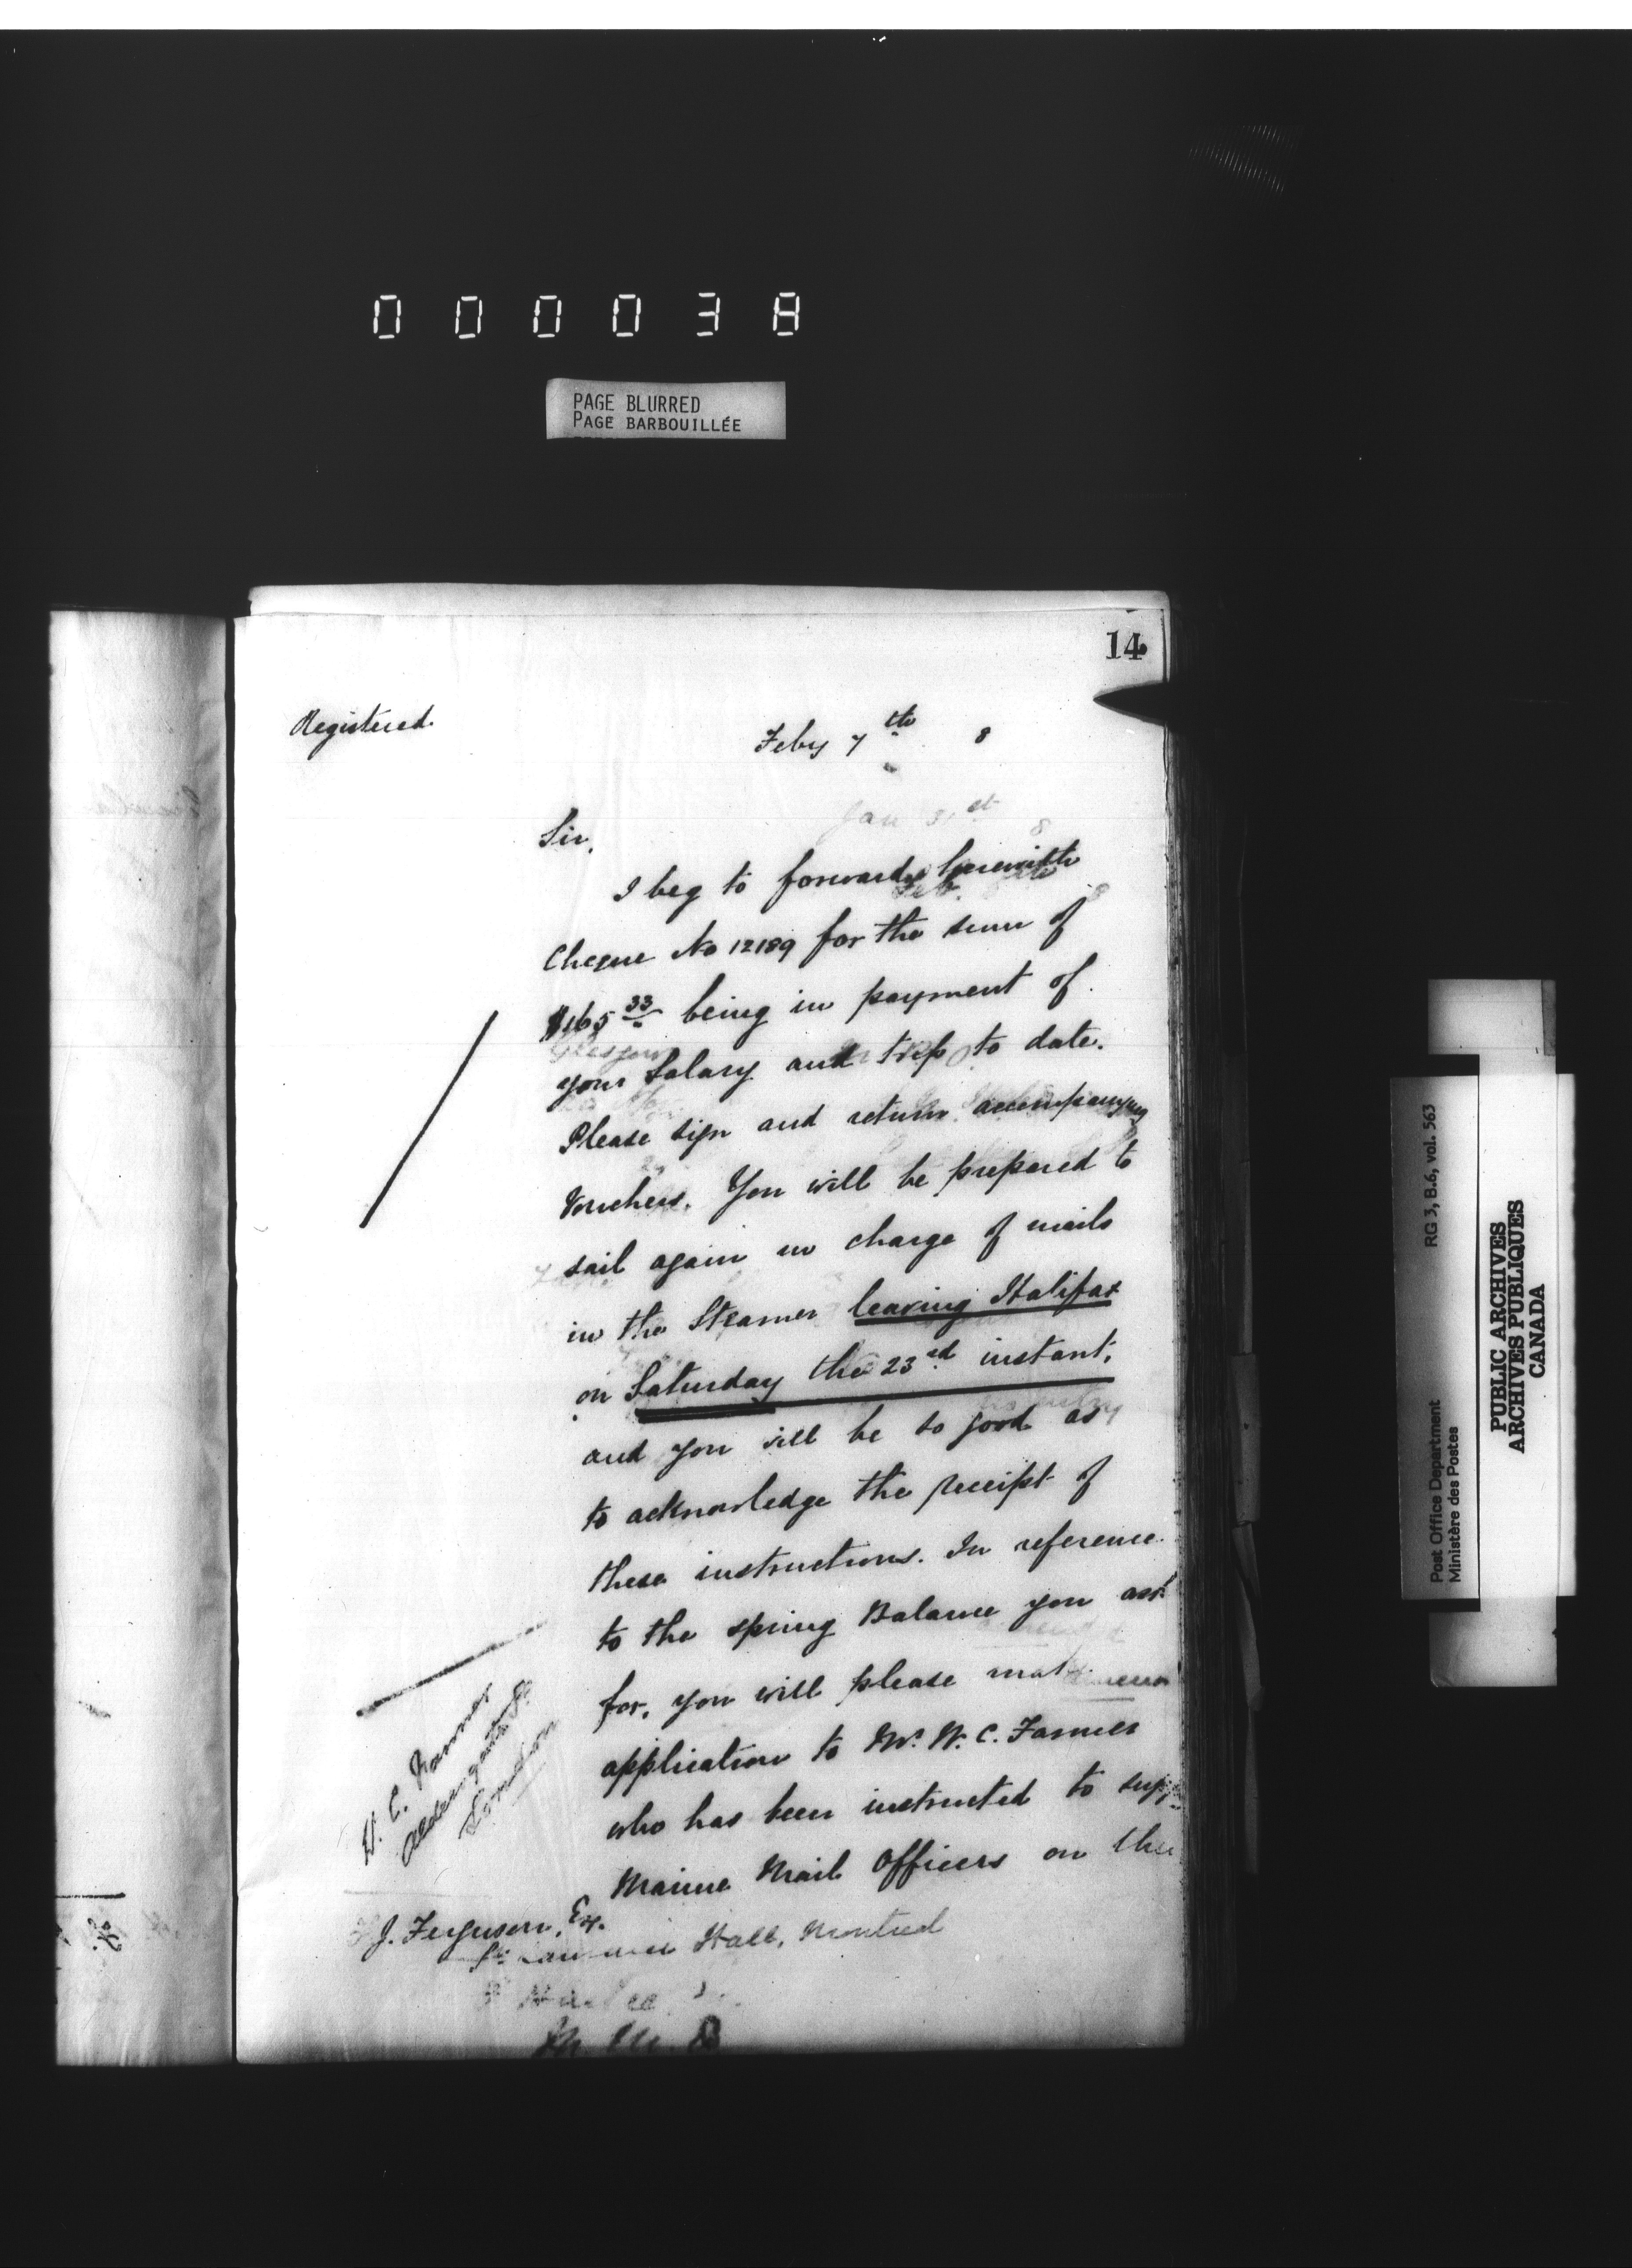 000038
PAGE BLURRED
PAGE BARBOUILLÉE
14
Registered.
Feby 7th 8
Jan 31st 8
Sir,
I beg to forward herewith
Cheque No 12189 for the sum of
$165 33 being in payment of
your Salary and trip to date.
Please sign and return accompanying
Vouchers. You will be prepared to
sail again in charge of mails
in the Steamer leaving Halifax
on Saturday the 23rd instant,
and you will be so good as
to acknowledge the receipt of
these instructions. In reference
to the spring Balance you ask
for, you will please
application to Mr. W. C. Farmer
who has been instructed to
Marine Mail Officers on the
W. C. Farmer
Aldersgate St
London
J. Ferguson, Esq.
Hall, Montreal
RG 3, B.6, vol. 563
Post Office Department
Ministère des Postes
PUBLIC ARCHIVES
ARCHIVES PUBLIQUES
CANADA